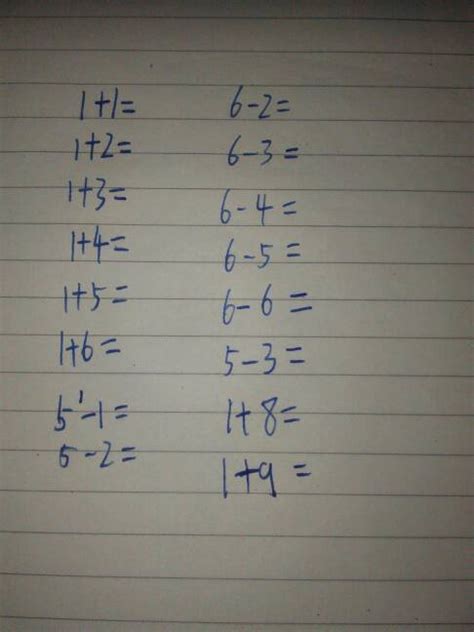 1+1= 6-2=
1+2= 6-3=
1+3= 6-4=
1+4= 6-5=
1+5= 6-6=
1+6= 5-3=
5-1= 1+8=
5-2= 1+9=